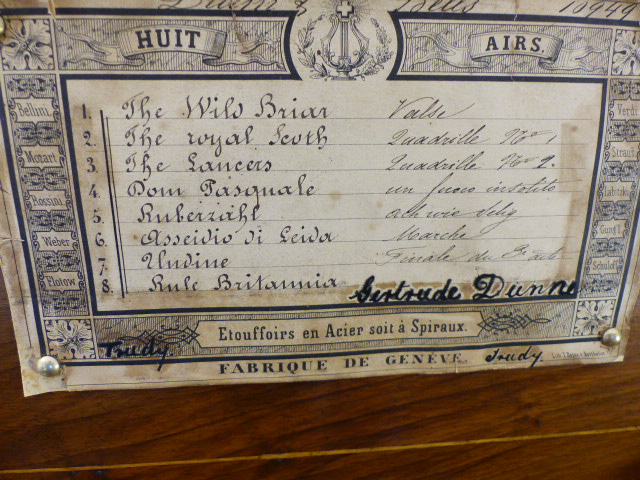 Drum & Bells 16949
HUIT AIRS.
Bellini
Mozart
Rossini
Weber
Flotow
1. The Wild Briar Valse
2. The royal Scoth Quadrille No 1
3. The Lancers Quadrille No 2.
4. Dom Pasquale un fuoco insolito
5. Ruberzahl ach wie selig
6. Asseidio di Leida Marche
7. Undine Finale du 3e act
8. Rule Britannia
Gertrude Dunne
Verdi
Strauss
Labitzki
Gung'l
Schuloff
Etouffoirs en Acier soit à Spiraux.
Trudy
FABRIQUE DE GENÈVE.
Trudy